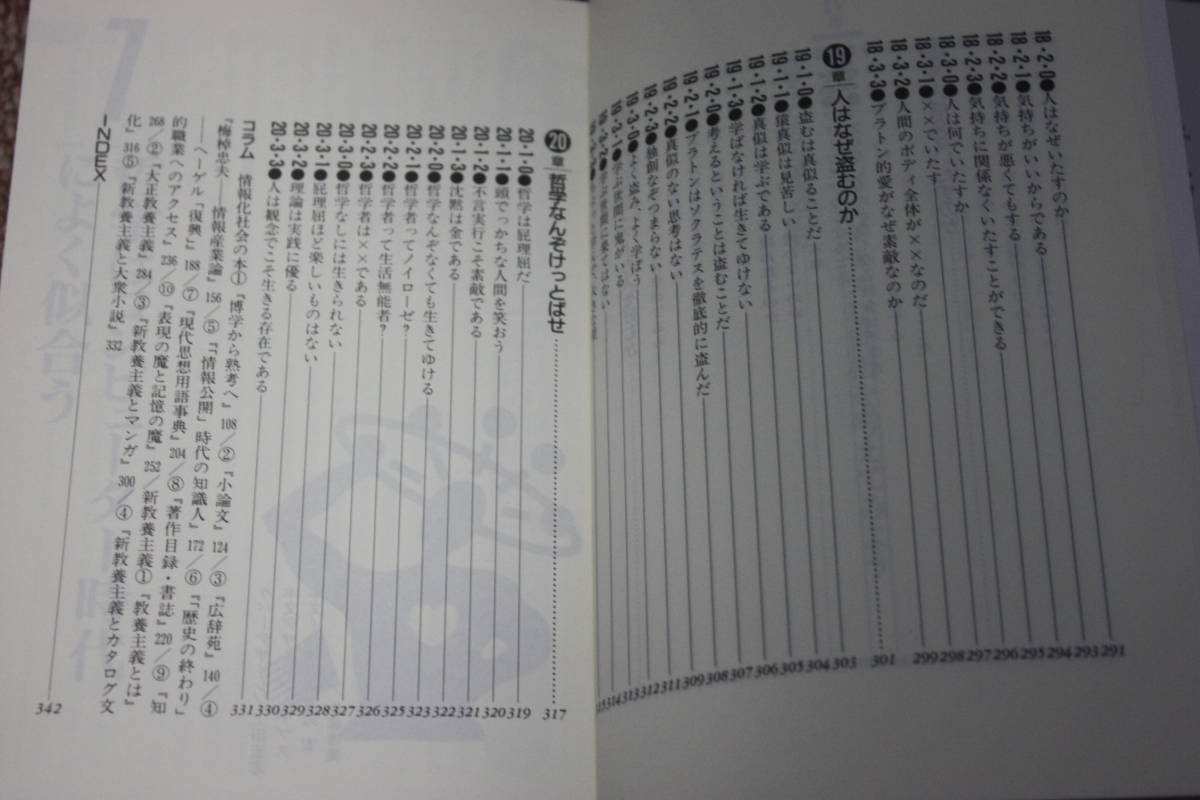 18・2・0●人はなぜいたすのか 291
18・2・1●気持ちがいいからである 293
18・2・2●気持ちが悪くてもする 294
18・2・3●気持ちに関係なくいたすことができる 295
18・3・0●人は何でいたすのか 296
18・3・1●××でいたす 297
18・3・2●人間のボディ全体が××なのだ 298
18・3・3●プラトン的愛がなぜ素敵なのか 299
19章 人はなぜ盗むのか 301
19・1・0●盗むは真似ることだ 303
19・1・1●猿真似は見苦しい 304
19・1・2●真似は学ぶである 305
19・1・3●学ばなければ生きてゆけない 306
19・2・0●考えるということは盗むことだ 307
19・2・1●プラトンはソクラテスを徹底的に盗んだ 308
19・2・2●真似のない思考はない 309
19・2・3●独創なぞつまらない 311
19・3・0●よく盗み、よく学ばう 312
19・3・1●学ぶ世間に鬼がいる 313
314
20章 哲学なんぞけっとばせ 317
20・1・0●哲学は屁理屈だ 319
20・1・1●頭でっかちな人間を笑おう 320
20・1・2●不言実行こそ素敵である 321
20・1・3●沈黙は金である 322
20・2・0●哲学なんぞなくても生きてゆける 323
20・2・1●哲学者ってノイローゼ? 325
20・2・2●哲学者って生活無能者? 326
20・2・3●哲学者は××である 327
20・3・0●哲学なしには生きられない 328
20・3・1●屁理屈ほど楽しいものはない 329
20・3・2●理論は実践に優る 330
20・3・3●人は観念でこそ生きる存在である 331
コラム 情報化社会の本①『博学から熟考へ』108/②『小論文』124/③『広辞苑』140/④
『梅棹忠夫――情報産業論』156/⑤『「情報公開」時代の知識人』172/⑥『「歴史の終わり」
――ヘーゲル「復興」』188/⑦『現代思想用語事典』204/⑧『著作目録・書誌』220/⑨『知
的職業へのアクセス』236/⑩『表現の魔と記憶の魔』252/新教養主義①『教養主義とは』
268/②『大正教養主義』284/③『新教養主義とマンガ』300/④『新教養主義とカタログ文
化』316⑤『新教養主義と大衆小説』332
INDEX 342